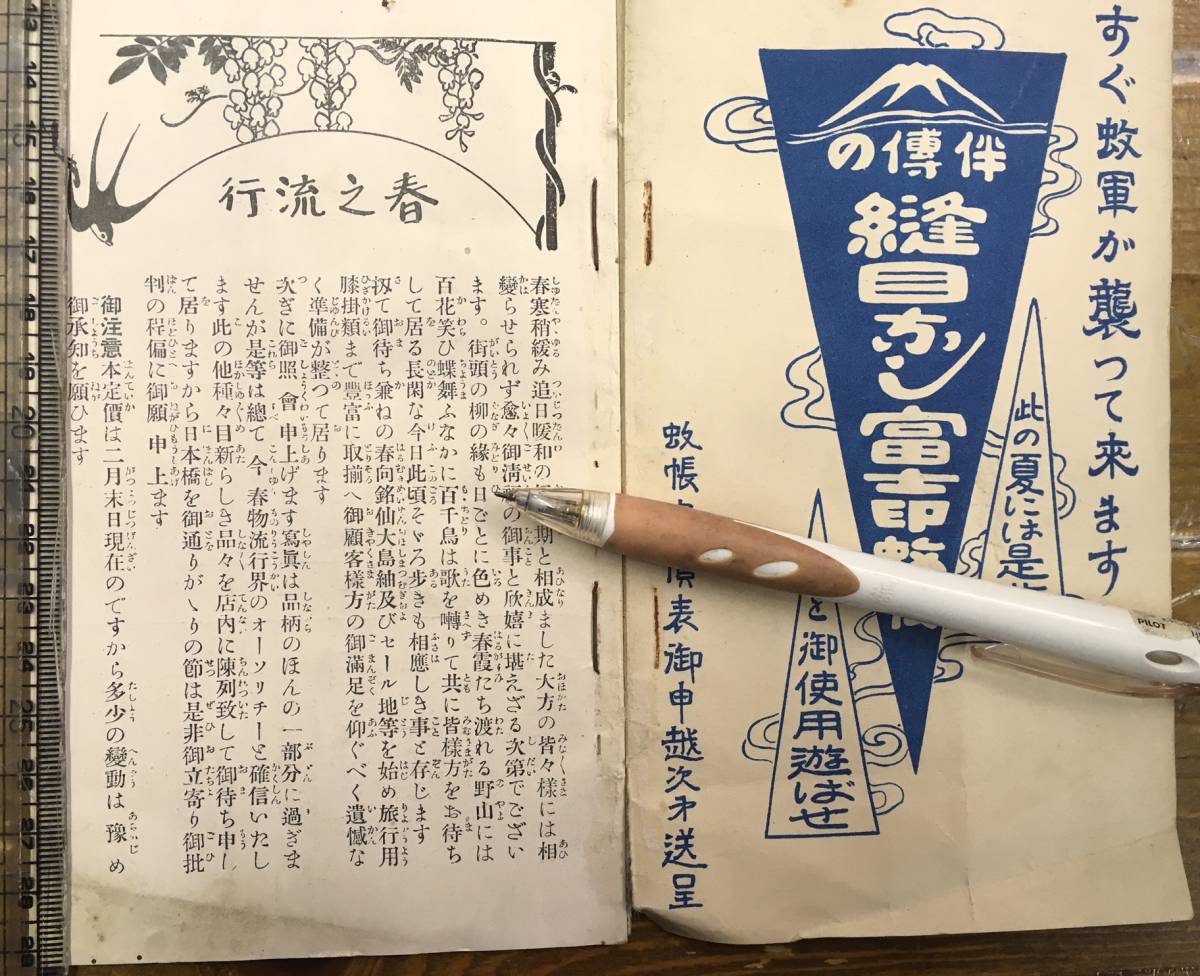 すぐ蚊軍が襲つて来ます
伴傳の
縫目ナシ富士印
此の夏には是
を御使用遊ばせ
蚊帳 價表御申越次才送呈
春之流行
春寒稍緩み追日暖和の 期と相成ました大方の皆々様には相
變らせられず愈々御清 の御事と欣嬉に堪えざる次第でござい
ます。街頭の柳の緑も日ごとに色めき春霞たち渡れる野山には
百花笑ひ蝶舞ふなかに百千鳥は歌を囀りて共に皆様方をお待ち
して居る長閑な今日此頃そゞろ歩きも相應しき事と存じます
扨て御待ち兼ねの春向銘仙大島紬及びセール地等を始め旅行用
膝掛類まで豐富に取揃へ御顧客様方の御滿足を仰ぐべく遺憾な
く準備が整つて居ります
次ぎに御照會申上げます寫眞は品柄のほんの一部分に過ぎま
せんが是等は總て今春物流行界のオーソリチーと確信いたし
ます此の他種々目新らしき品々を店内に陳列致して御待ち申し
て居りますから日本橋を御通りがゝりの節は是非御立寄り御批
判の程偏に御願申上ます
御注意本定價は二月末日現在のですから多少の變動は豫め
御承知を願ひます
PILOT
13
14
15
16
17
18
19
20
21
22
23
24
25
26
27
28
29